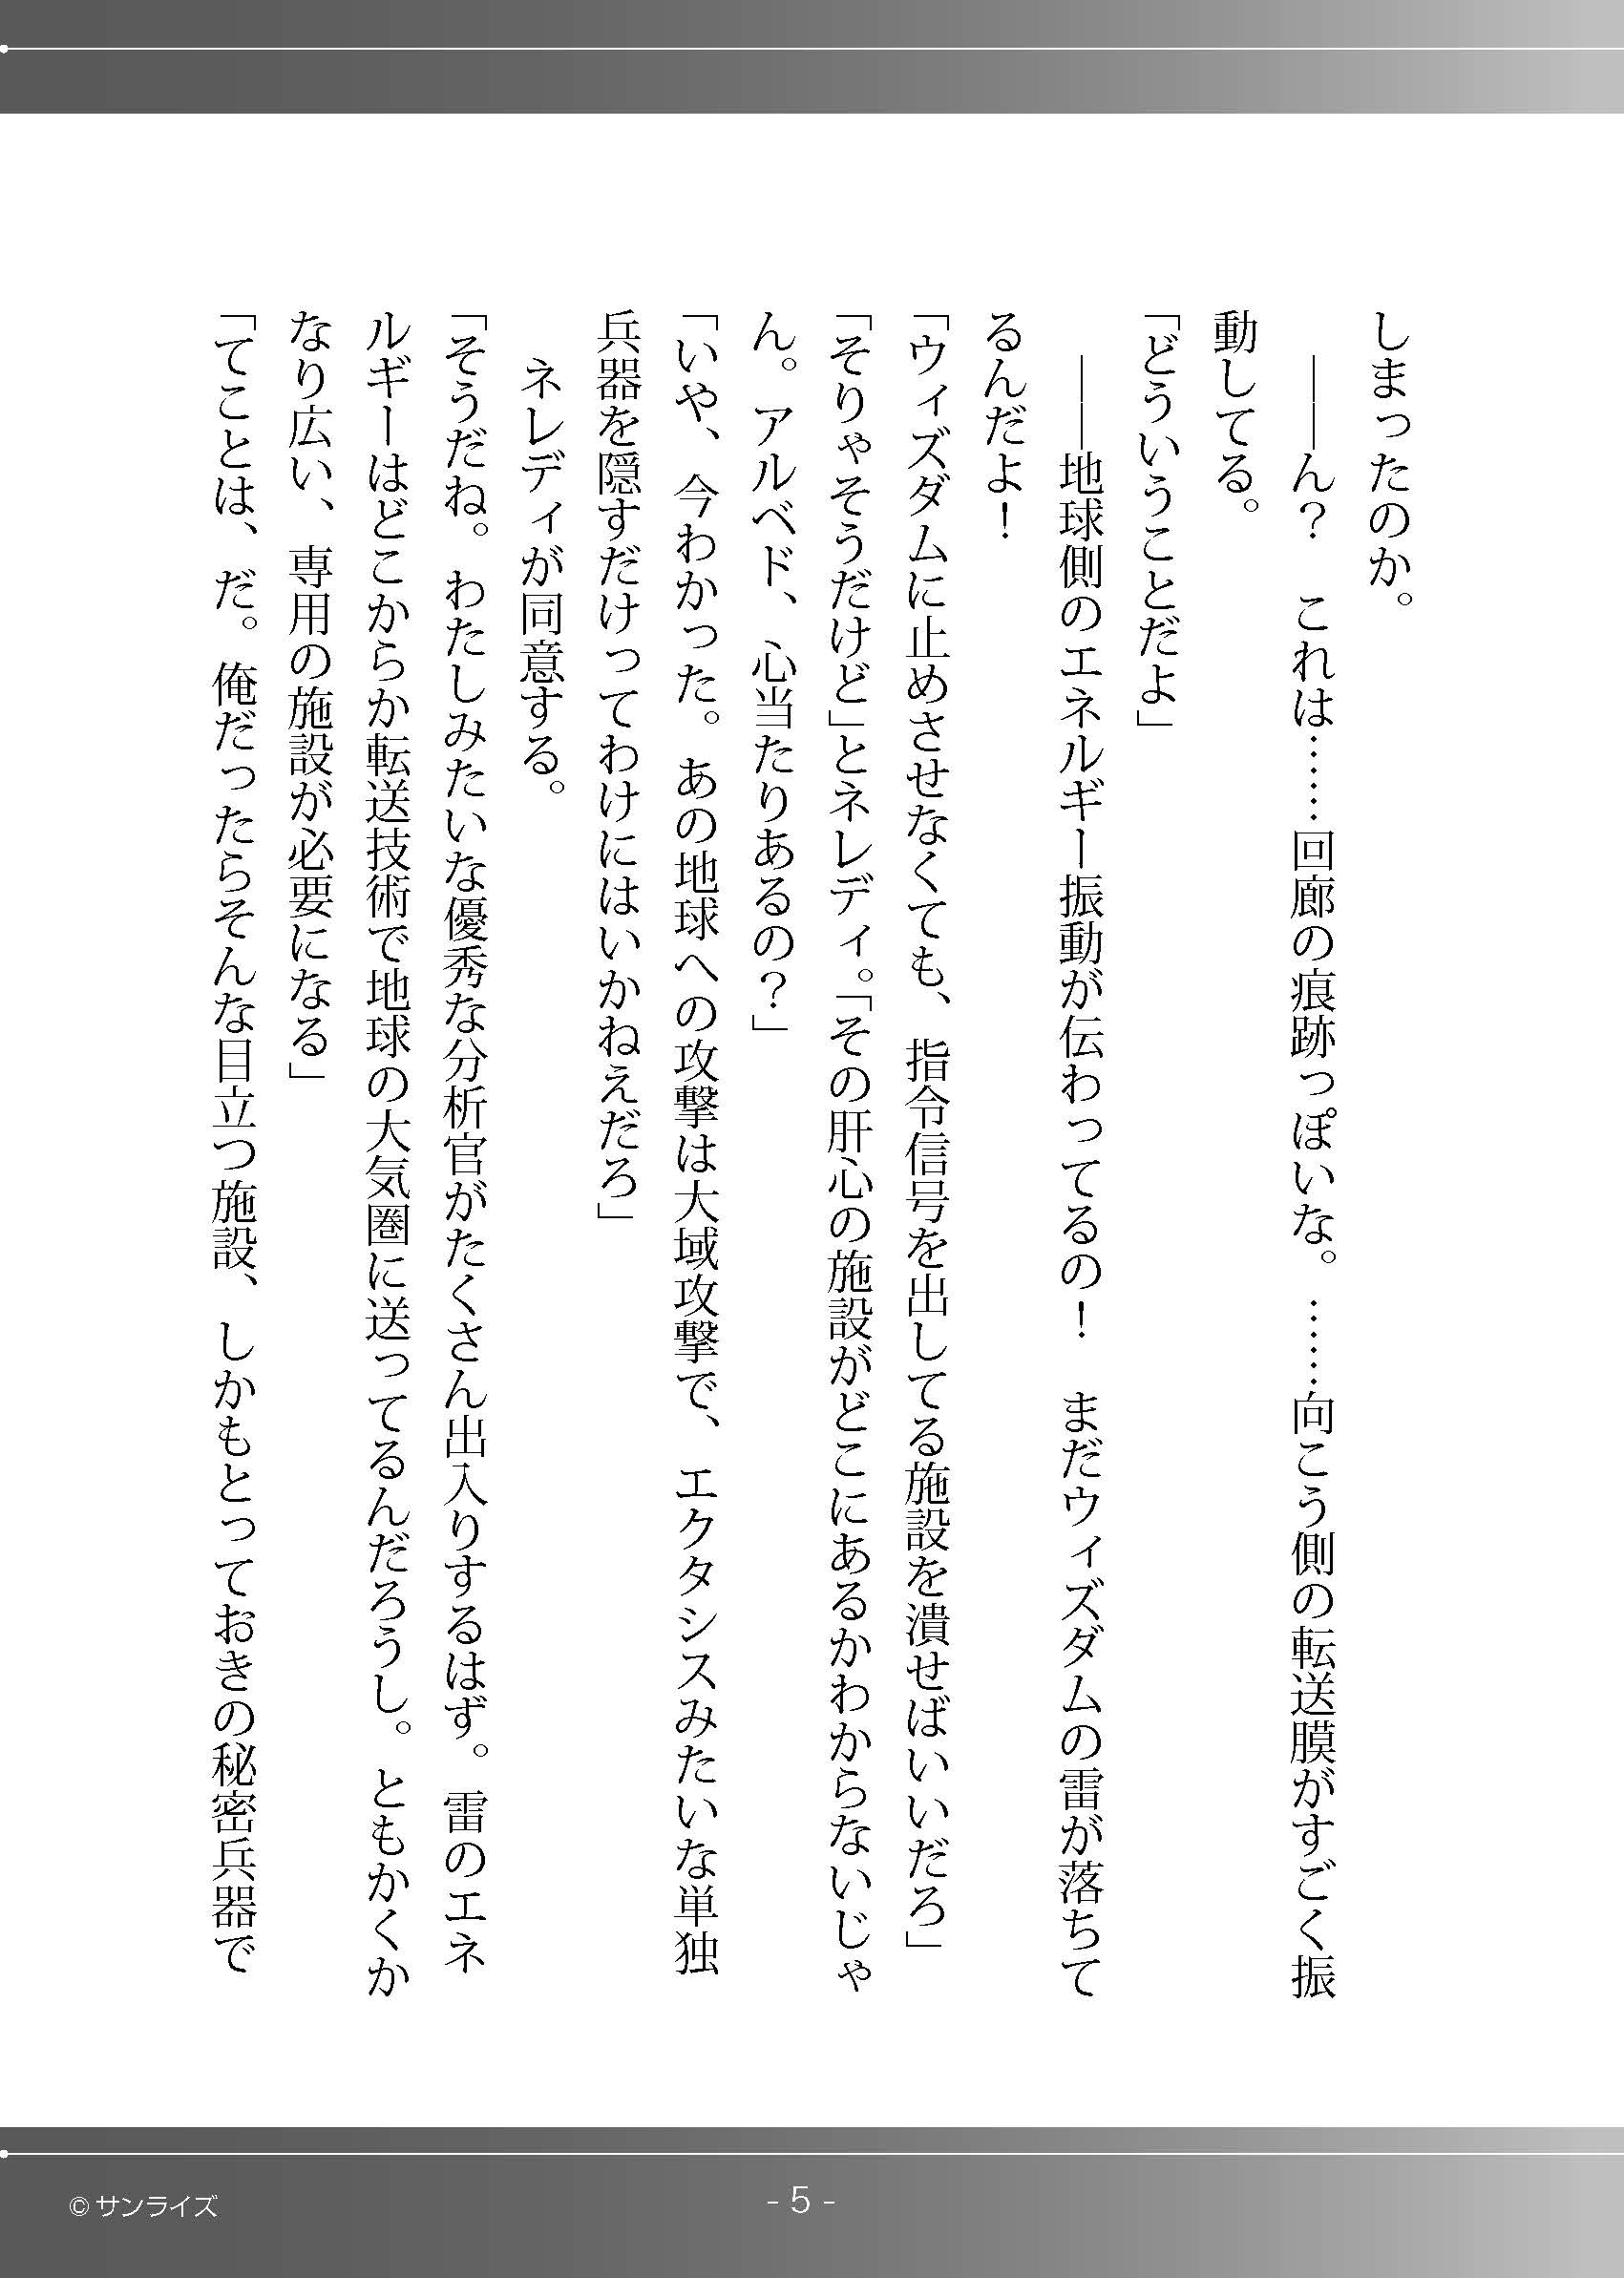 しまったのか。
　――ん？　これは……回廊の痕跡っぽいな。……向こう側の転送膜がすごく振
動してる。
「どういうことだよ」
　――地球側のエネルギー振動が伝わってるの！　まだウィズダムの雷が落ちて
るんだよ！
「ウィズダムに止めさせなくても、指令信号を出してる施設を潰せばいいだろ」
「そりゃそうだけど」とネレディ。「その肝心の施設がどこにあるかわからないじゃ
ん。アルベド、心当たりあるの？」
「いや、今わかった。あの地球への攻撃は大域攻撃で、エクタシスみたいな単独
兵器を隠すだけってわけにはいかねえだろ」
　ネレディが同意する。
「そうだね。わたしみたいな優秀な分析官がたくさん出入りするはず。雷のエネ
ルギーはどこからか転送技術で地球の大気圏に送ってるんだろうし。ともかくか
なり広い、専用の施設が必要になる」
「てことは、だ。俺だったらそんな目立つ施設、しかもとっておきの秘密兵器で
- 5 -
© サンライズ